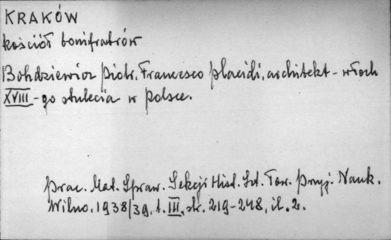 KRAKÓW
kościół bonifratrów
Bohdziewicz Piotr, Francesco Placidi, architekt - włoch
XVIII-go stulecia w Polsce.
Prac. Mat. Spraw. Sekcji Hist. Szt. Tow. Przyj. Nauk.
Wilno, 1938/39, t. III, str. 219-248, il. 2.